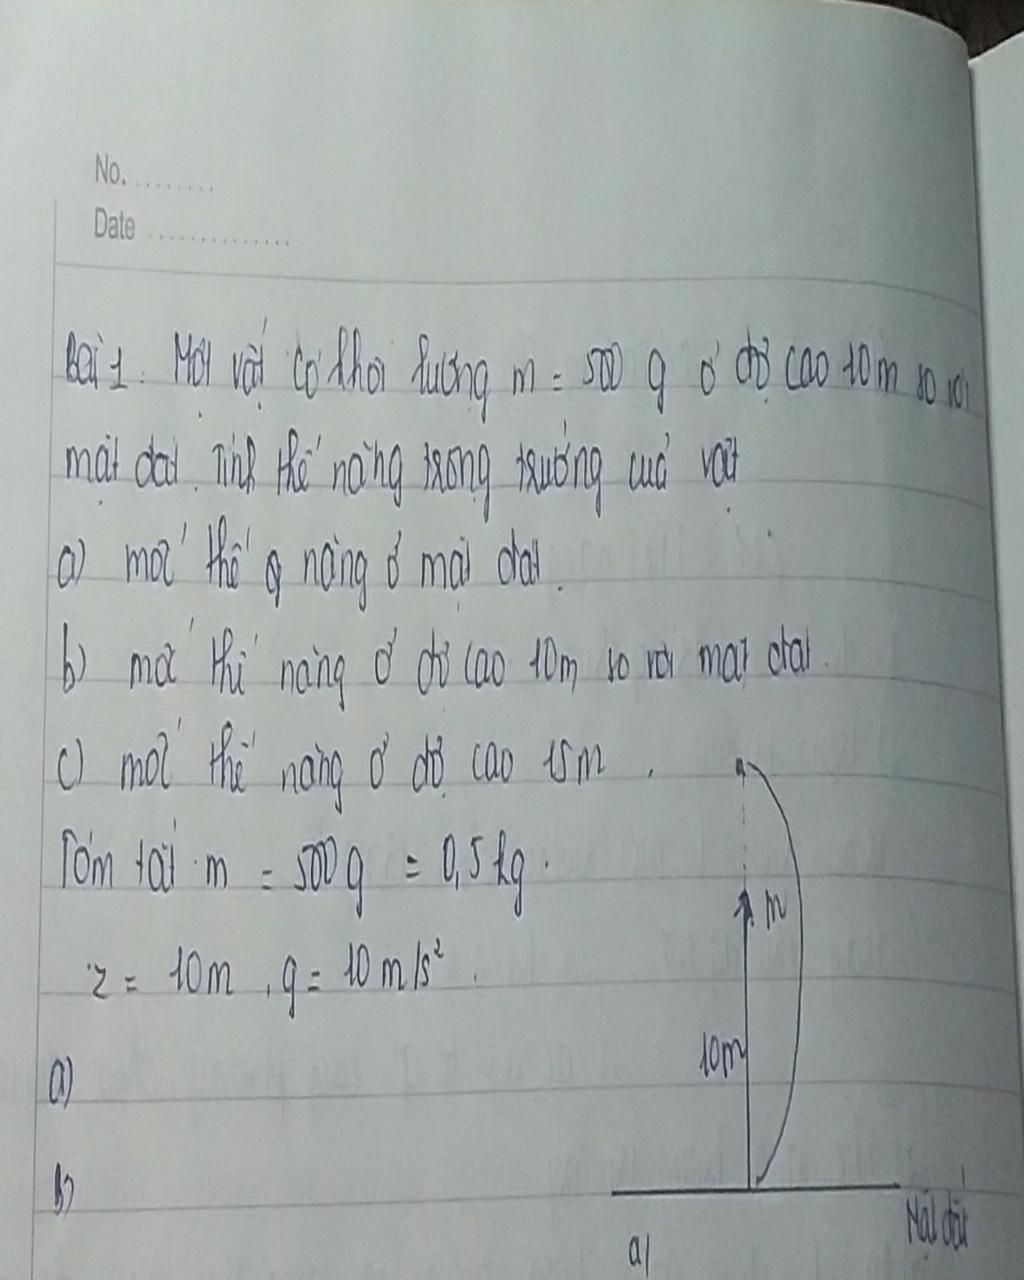 No. .........
Date ..............
Bài 1. Một vật có khối lượng m = 500 g ở độ cao 10m so với
mặt đất. Tính thế năng trọng trường của vật
a) mốc thế năng ở mặt đất.
b) mốc thế năng ở độ cao 10m so với mặt đất.
c) mốc thế năng ở độ cao 15m.
Tóm tắt m = 500g = 0,5 kg.
z = 10m, g = 10 m/s²
m
10m
a)
b)
Mặt đất
a)